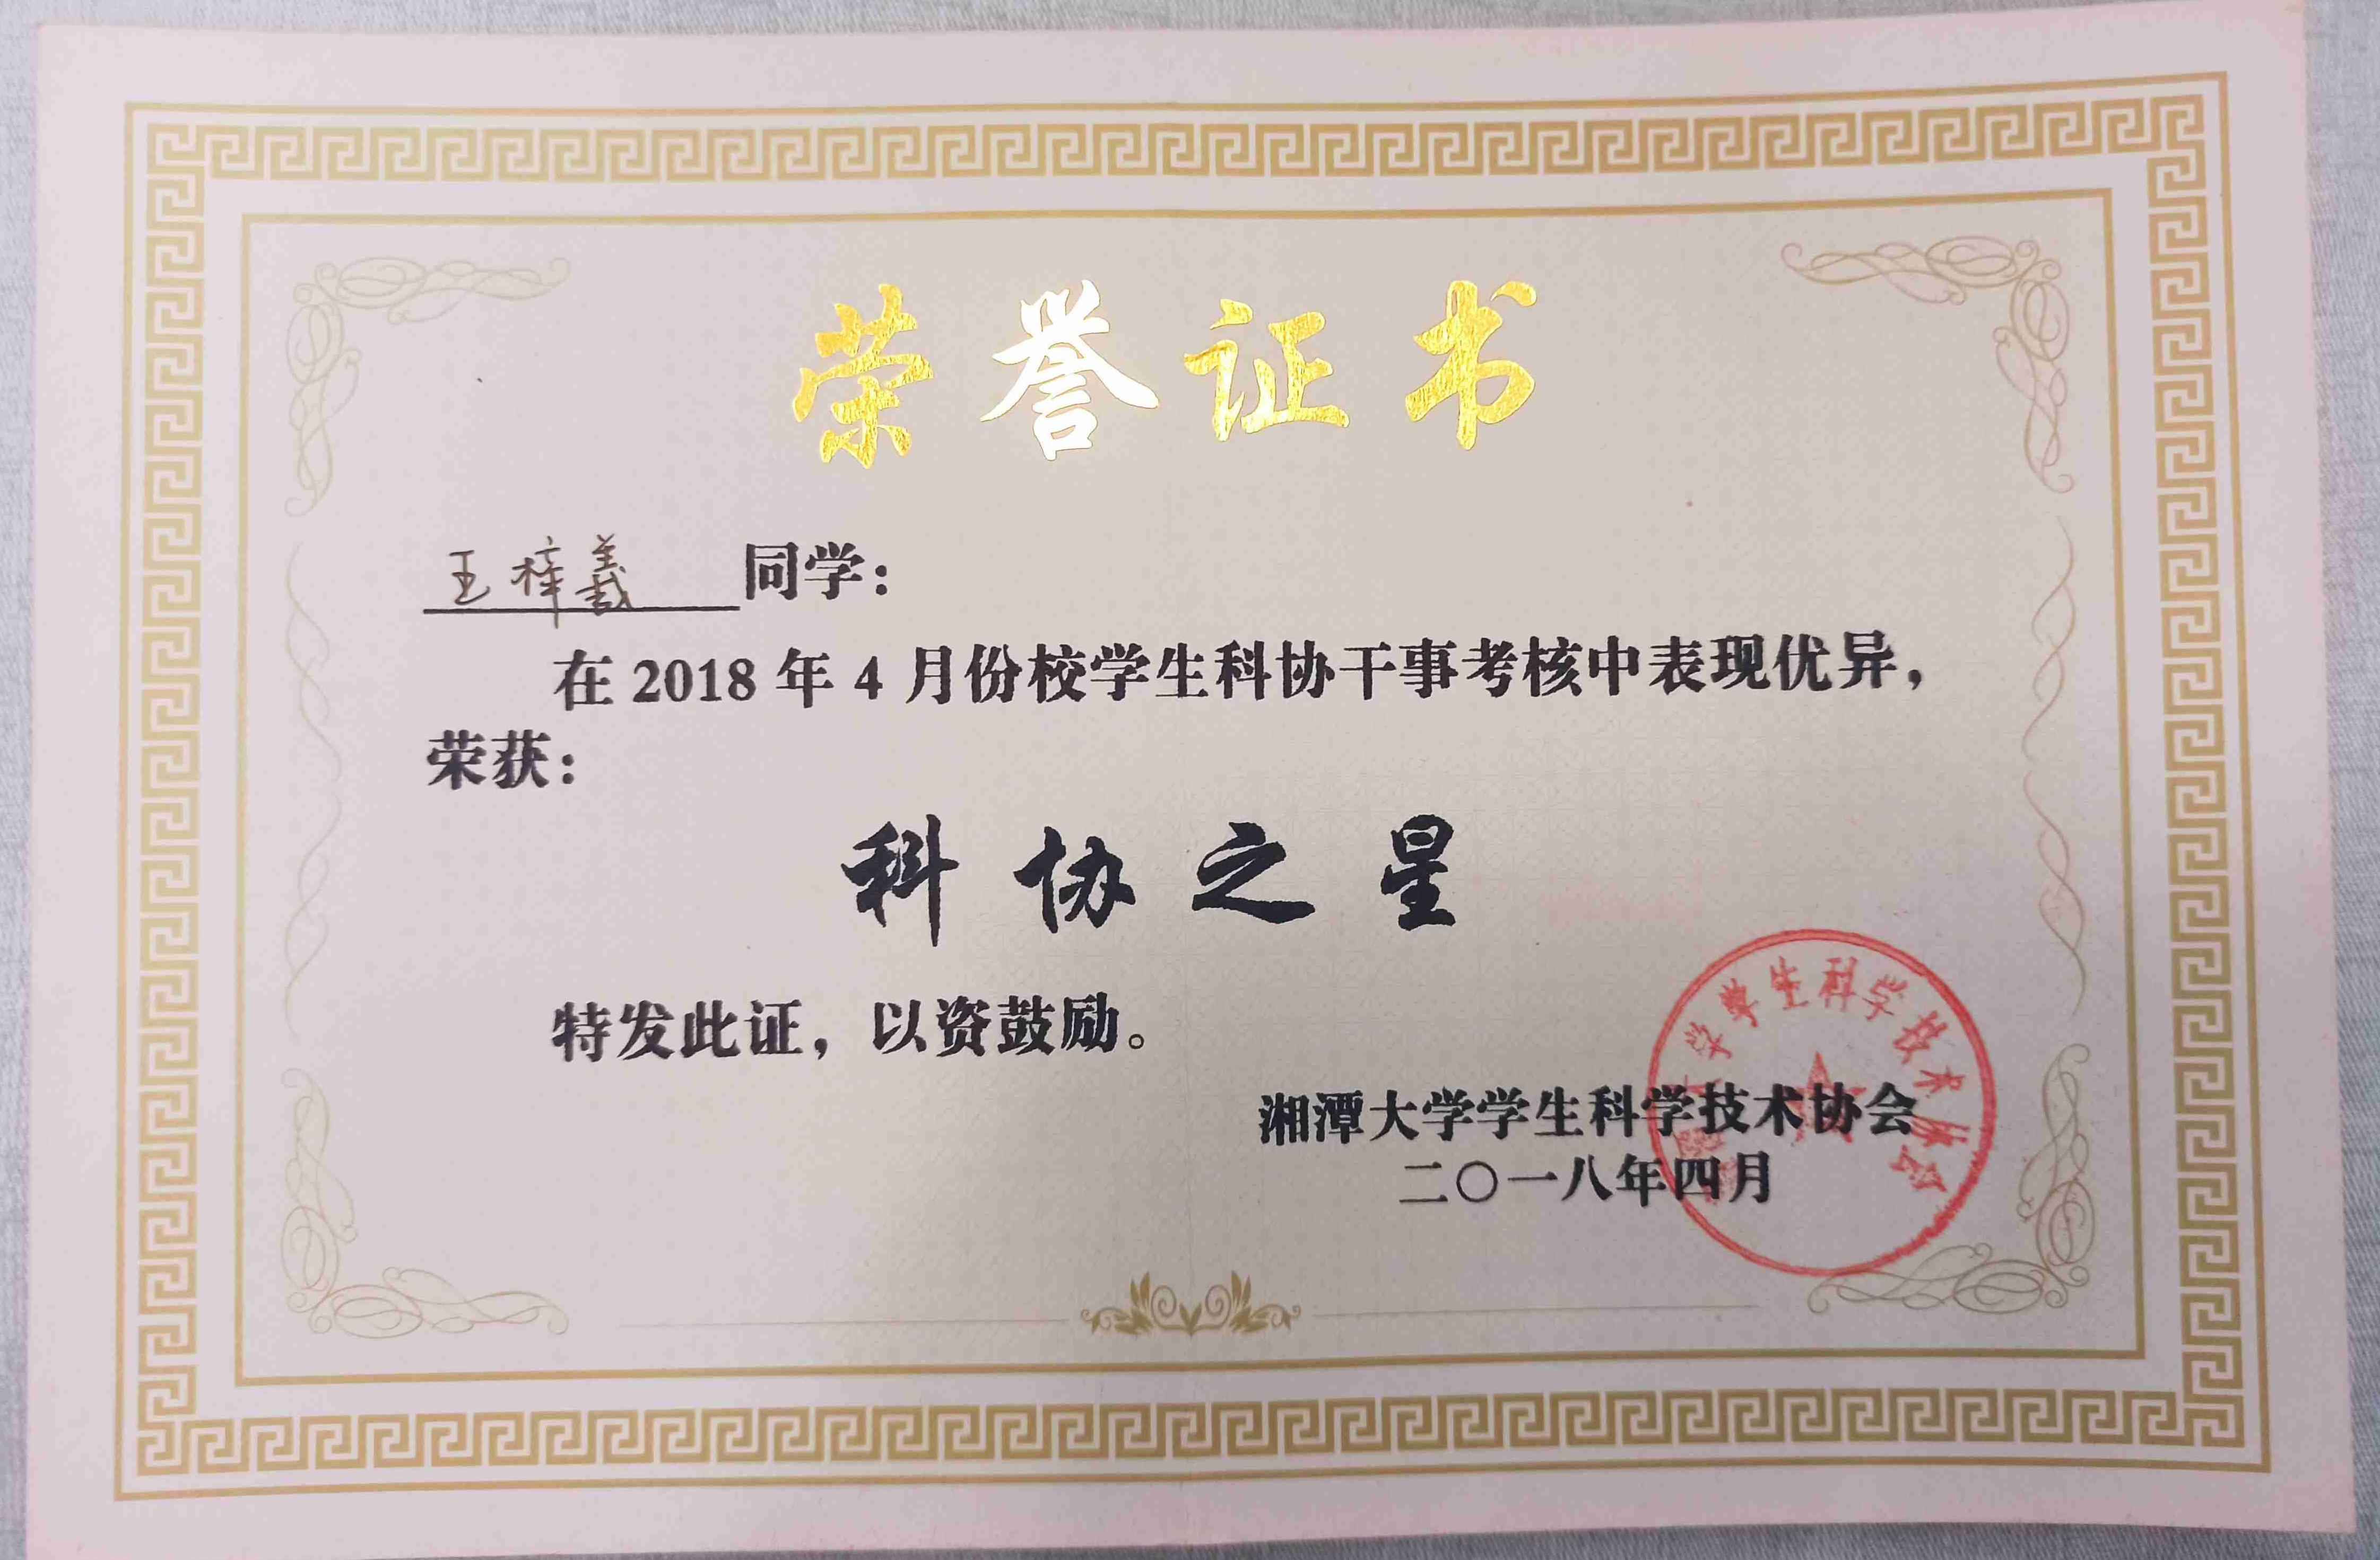 荣誉证书
王梓羲 同学：
在 2018 年 4 月份校学生科协干事考核中表现优异，
荣获：
科协之星
特发此证，以资鼓励。
湘潭大学学生科学技术协会
二〇一八年四月
学学生科学技术协会